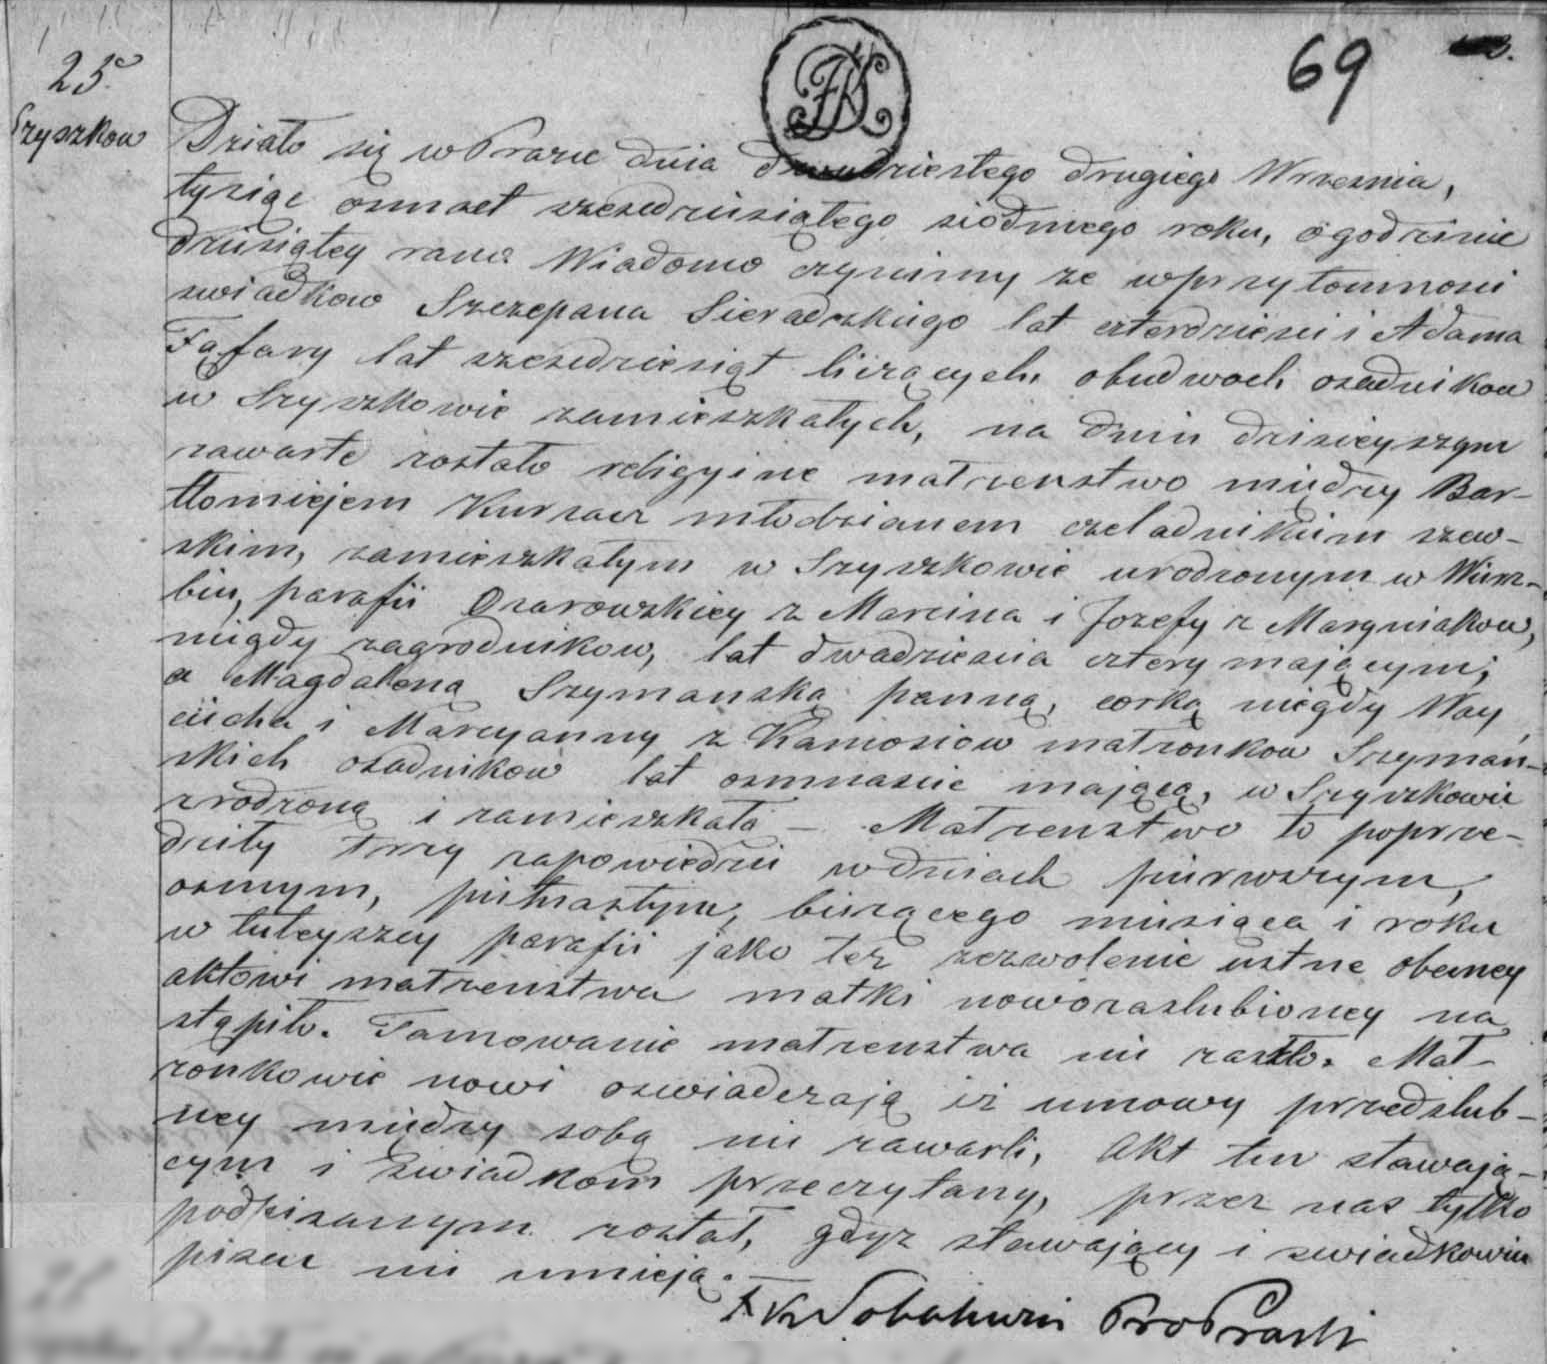 69
25.
Szyszkow
Działo się w Praszce dnia dwudziestego drugiego Wrzesnia,
tysiąc osmset szescdziesiątego siodmego roku, o godzinie
dziesiątey rano. Wiadomo czynimy ze w przytomnosci
swiadkow Szczepana Sieradzkiego lat czterdziesci i Adama
Fąfary lat szescdziesiąt liczących, obudwoch osadnikow
w Szyszkowie zamieszkałych, na dniu dzisieyszym
zawarte zostało religyine małzenstwo między Bar-
tłomiejem Kurzacz młodzianem czeladnikiem szew-
skim, zamieszkałym w Szyszkowie urodzonym w Wierz-
biu, parafii Ozarowskiey z Marcina i Jozefy z Maryniakow,
niegdy zagrodnikow, lat dwadziescia cztery maiącym;
a Magdaleną Szymanską panną, corką niegdy Woy
ciecha i Maryanny z Kamosiow małzonkow Szyman-
skich osadnikow lat osmnascie mającą, w Szyszkowie
zrodzoną i zamieszkałą – Małzenstwo to poprze-
dziły trzy zapowiedzi w dniach pierwszym,
osmym, pietnastym, biezącego miesiąca i roku
w tuteyszey parafii jako tez zezwolenie ustne obecney
aktowi małzenstwa matki nowozaslubioney na
stąpiło. Tamowanie małzenstwa nie zaszło. Mał-
zonkowie nowi oswiadczają iz umowy przedslub-
ney między sobą nie zawarli, Akt ten stawają-
cym i Swiadkom przeczytany, przez nas tylko
podpisanym został, gdyz stawający i swiadkowie
pisac nie umieją.